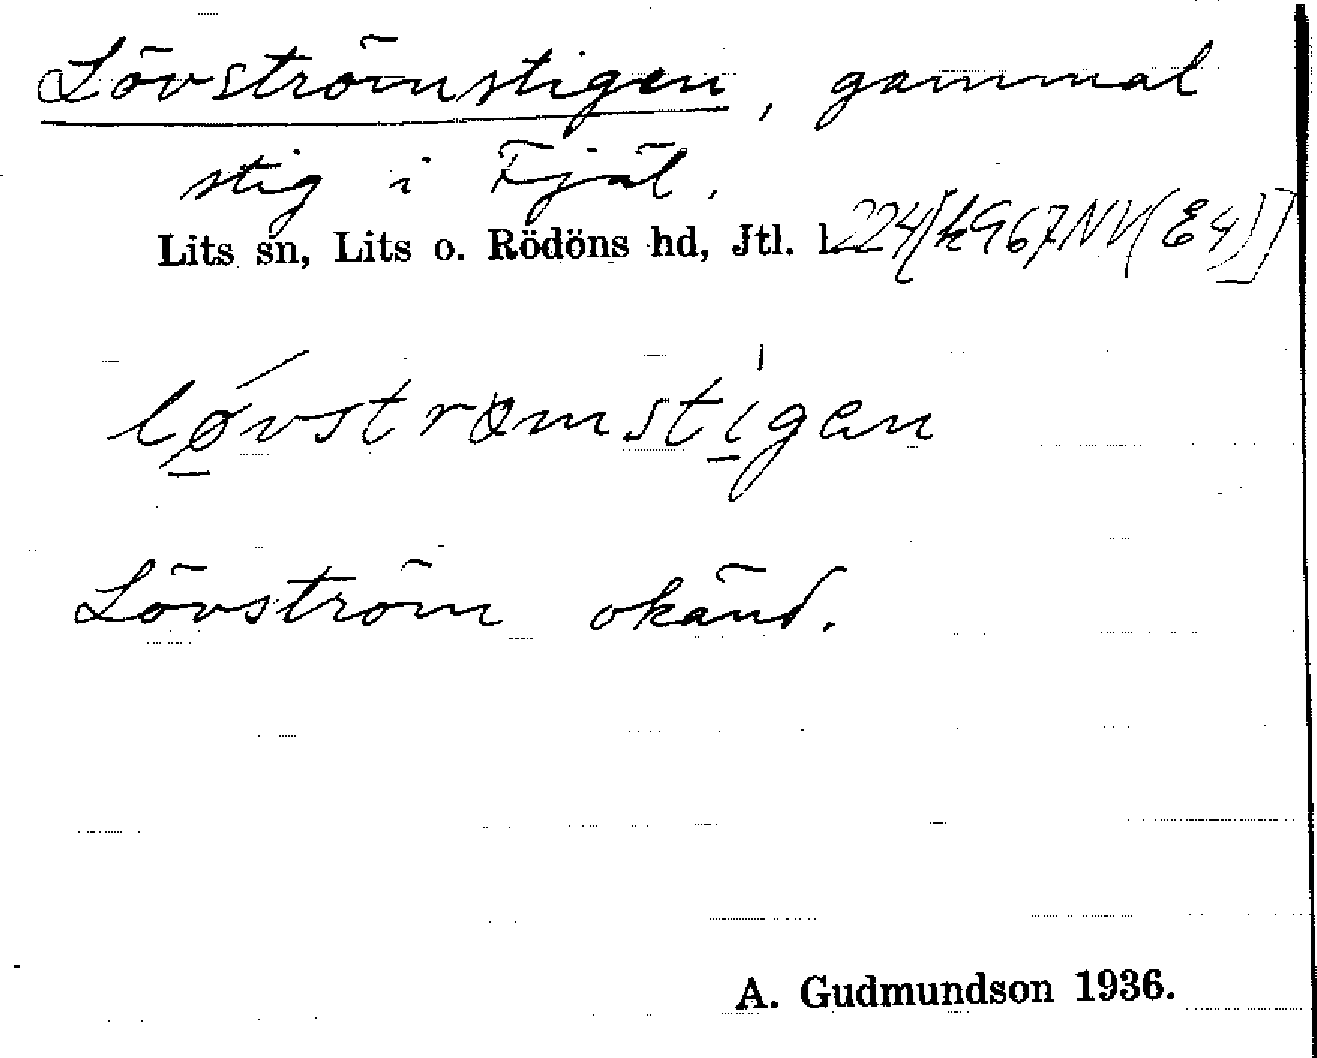 Lövströmstigen, gammal
stig i Fjäl.
Lits sn, Lits o. Rödöns hd, Jtl. l. 224[k967NV(E4)]
lǿvstrømstígen
Lövström okänd.
A. Gudmundson 1936.